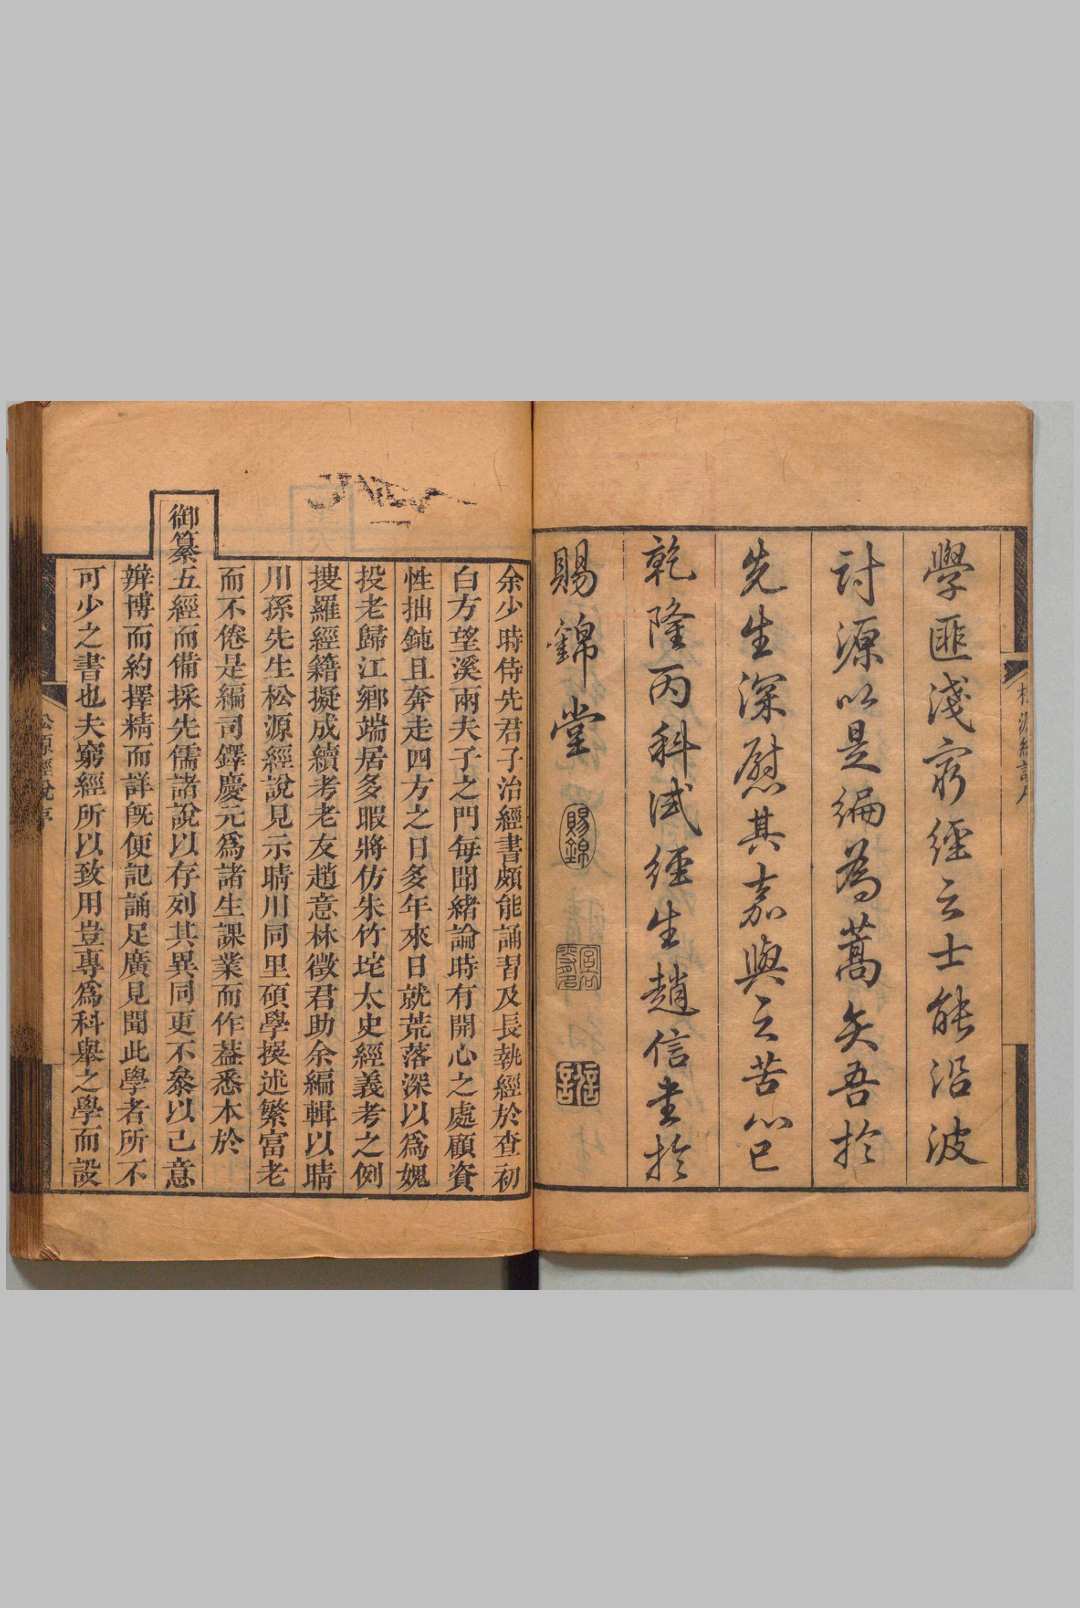 學匪淺窮經之士能沿波
討源以是編為蒿矢吾於
先生深慰其嘉與之苦心已
乾隆丙科試經生趙信書於
賜錦堂
賜錦
余少時侍先君子治經書頗能誦習及長執經於查初
白方望溪兩夫子之門每聞緒論時有開心之處顧資
性拙鈍且奔走四方之日多年來日就荒落深以爲媿
投老歸江鄉端居多暇將仿朱竹垞太史經義考之例
搜羅經籍擬成續考老友趙意林徵君助余編輯以晴
川孫先生松源經說見示晴川同里碩學撰述繁富老
而不倦是編司鐸慶元爲諸生課業而作葢悉本於
御纂五經而備採先儒諸說以存刻其異同更不叅以己意
辨博而約擇精而詳旣便記誦足廣見聞此學者所不
可少之書也夫窮經所以致用豈專爲科舉之學而設
松源經說序